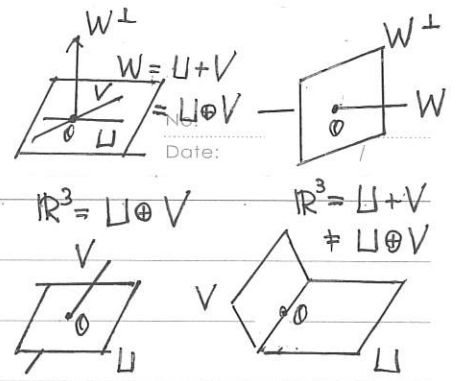 W⊥
W = U + V
= U⊕V
V
O
U
No.
Date:
W⊥
W
O
ℝ³ = U⊕V
V
O
U
ℝ³ = U + V
≠ U⊕V
V
O
U